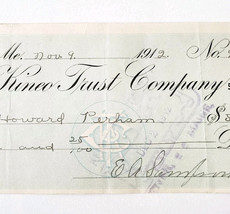 Me. Nov 9. 1912. No.
Kineo Trust Company
Howard Perham $
and 25/100
E A Simpson